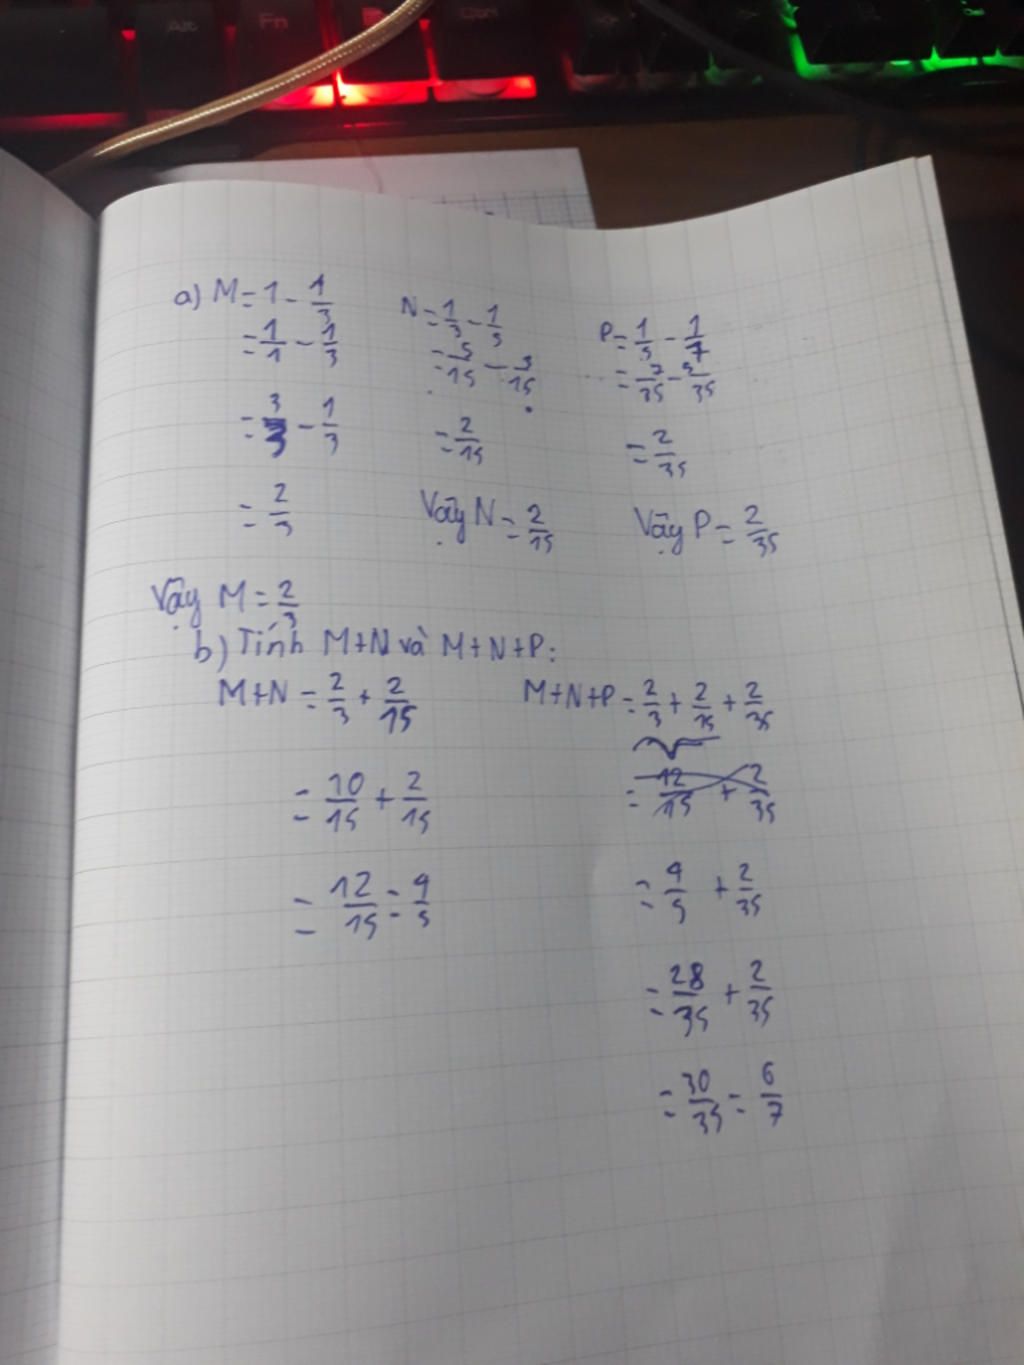 a) M = 1 - 1/3
= 1/1 - 1/3
= 3/3 - 1/3
= 2/3
Vậy M = 2/3
N = 1/3 - 1/5
= 5/15 - 3/15
= 2/15
Vậy N = 2/15
P = 1/5 - 1/7
= 7/35 - 5/35
= 2/35
Vậy P = 2/35
b) Tính M+N và M+N+P:
M+N = 2/3 + 2/15
= 10/15 + 2/15
= 12/15 = 4/5
M+N+P = 2/3 + 2/15 + 2/35
= 12/15 + 2/35
= 4/5 + 2/35
= 28/35 + 2/35
= 30/35 = 6/7